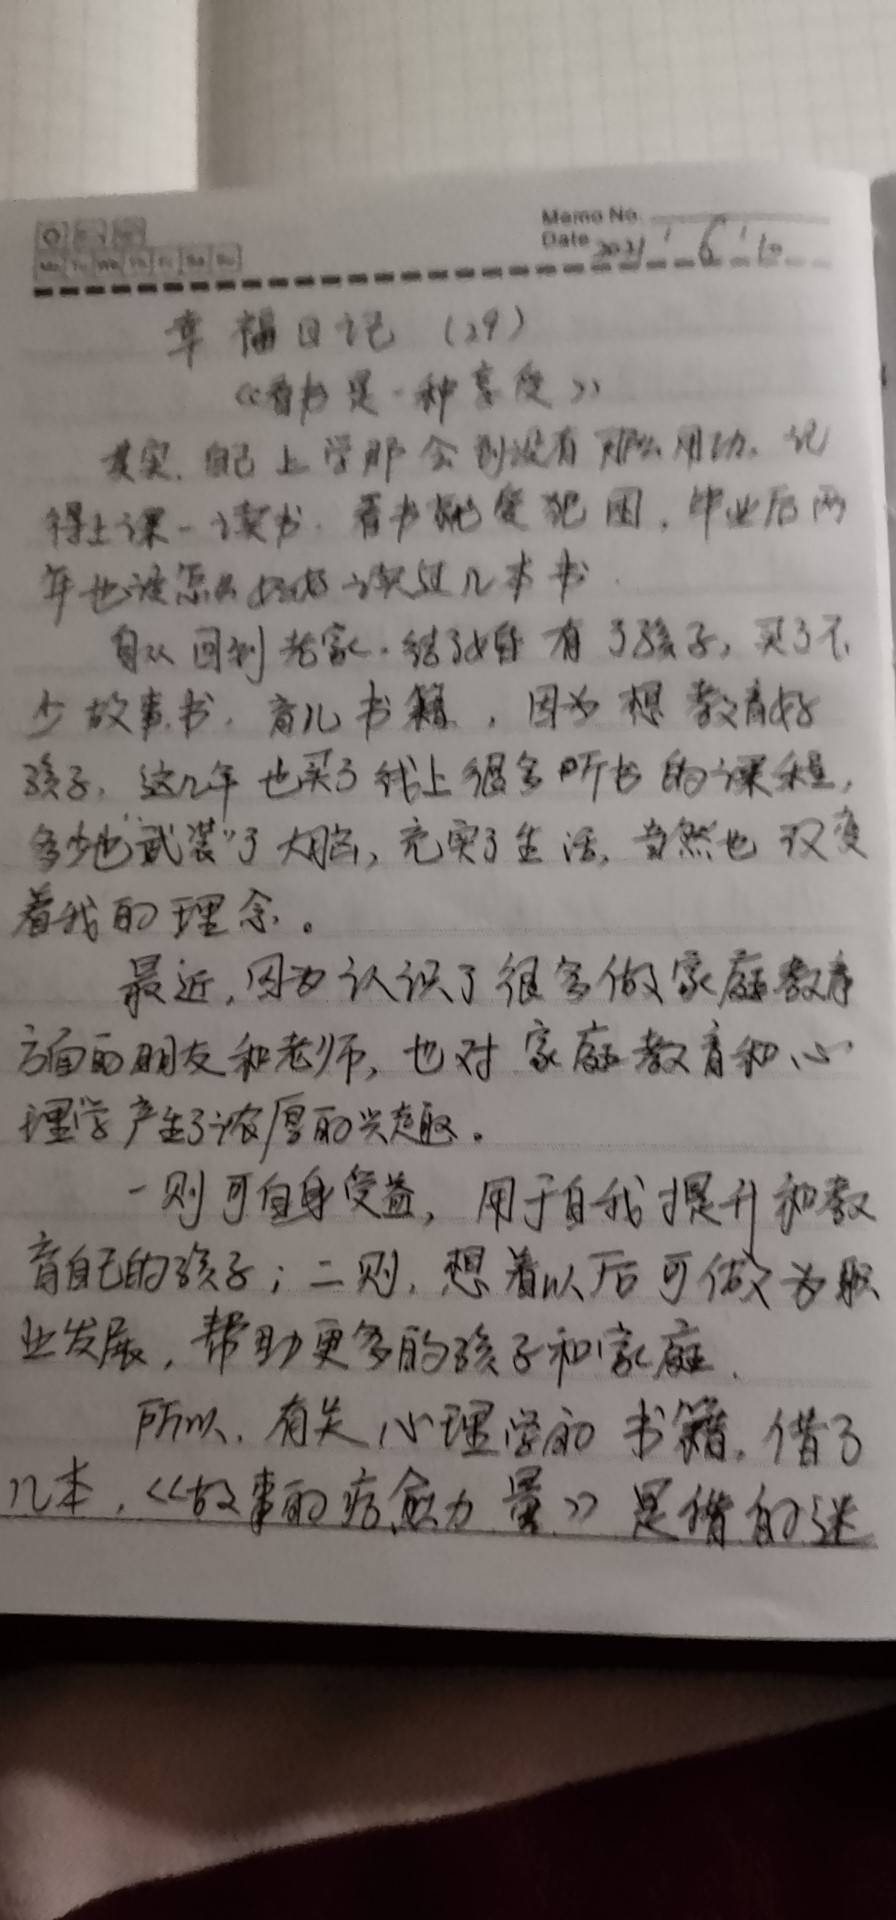 Memo No.
Date 2021 6 10
Mo Tu We Th Fr Sa Su
幸福日记（29）
《看书是一种享受》
其实，自己上学那会到没有那么用功。记
得上课一读书、看书就爱犯困，毕业后两
年也没怎么好好读过几本书
自从回到老家，结了婚有了孩子，买了不
少故事书、育儿书籍，因为想教育好
孩子，这几年也买了线上很多听书的课程，
多少也“武装”了大脑，充实了生活，当然也改变
着我的理念。
最近，因为认识了很多做家庭教育
方面的朋友和老师，也对家庭教育和心
理学产生了浓厚的兴趣。
一则可自身受益，用于自我提升和教
育自己的孩子；二则，想着以后可做为职
业发展，帮助更多的孩子和家庭。
所以，有关心理学的书籍，借了
几本，《故事的疗愈力量》是借的迷